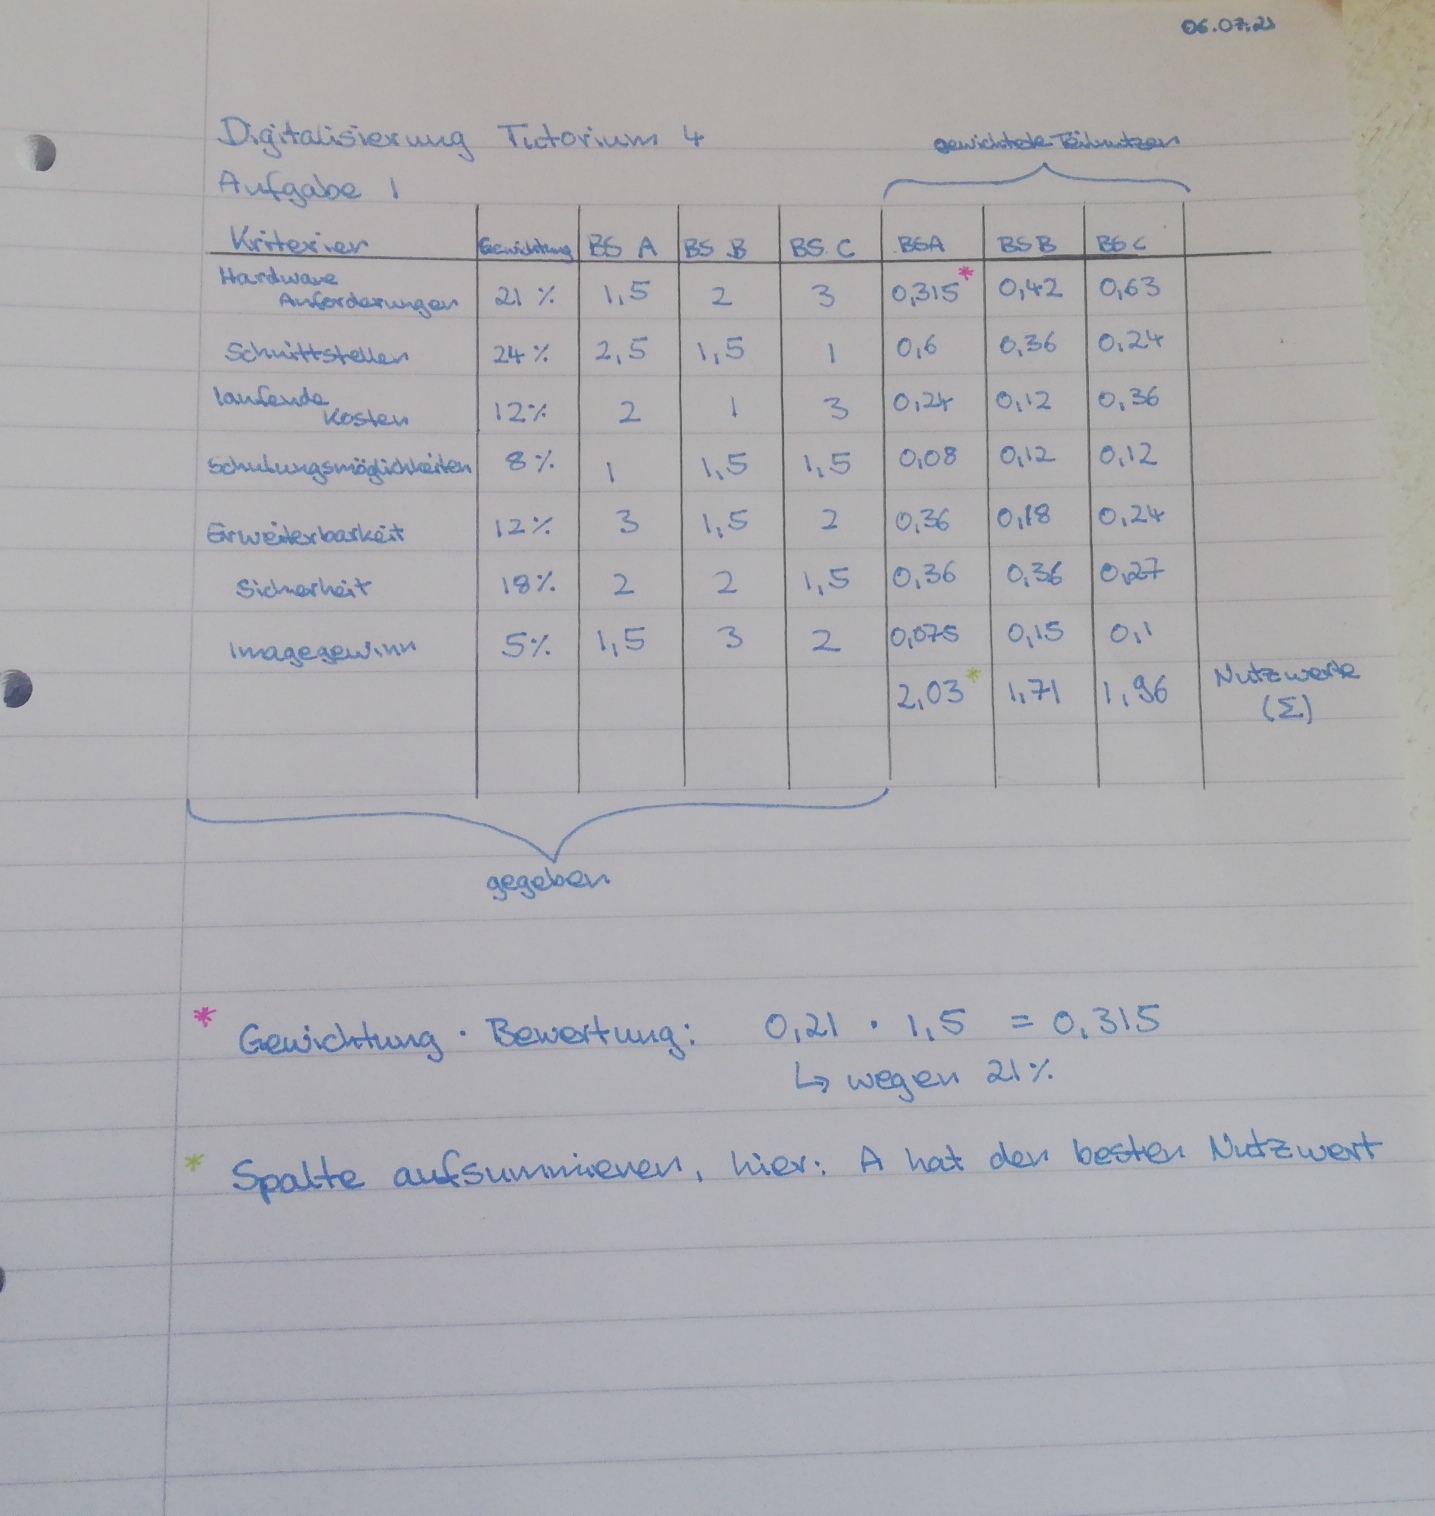 06.07.21
Digitalisierung Tutorium 4
gewichtete Teilnutzen
Aufgabe 1
Kriterien Gewichtung BS A BS B BS C BSA BSB BSC
Hardware Anforderungen 21 % 1,5 2 3 0,315* 0,42 0,63
Schnittstellen 24 % 2,5 1,5 1 0,6 0,36 0,24
laufende Kosten 12% 2 1 3 0,24 0,12 0,36
Schulungsmöglichkeiten 8% 1 1,5 1,5 0,08 0,12 0,12
Erweiterbarkeit 12% 3 1,5 2 0,36 0,18 0,24
Sicherheit 18% 2 2 1,5 0,36 0,36 0,27
Imagegewinn 5% 1,5 3 2 0,075 0,15 0,1
2,03* 1,71 1,96 Nutzwerte (Σ)
gegeben
* Gewichtung · Bewertung: 0,21 · 1,5 = 0,315
↳ wegen 21%
* Spalte aufsummieren, hier: A hat den besten Nutzwert